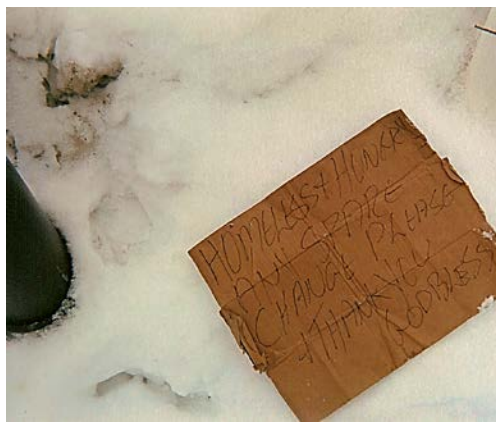 HOMELES + HUNGRY
ANY SPARE
CHANGE PLEASE
+THANK YOU
GODBLESS